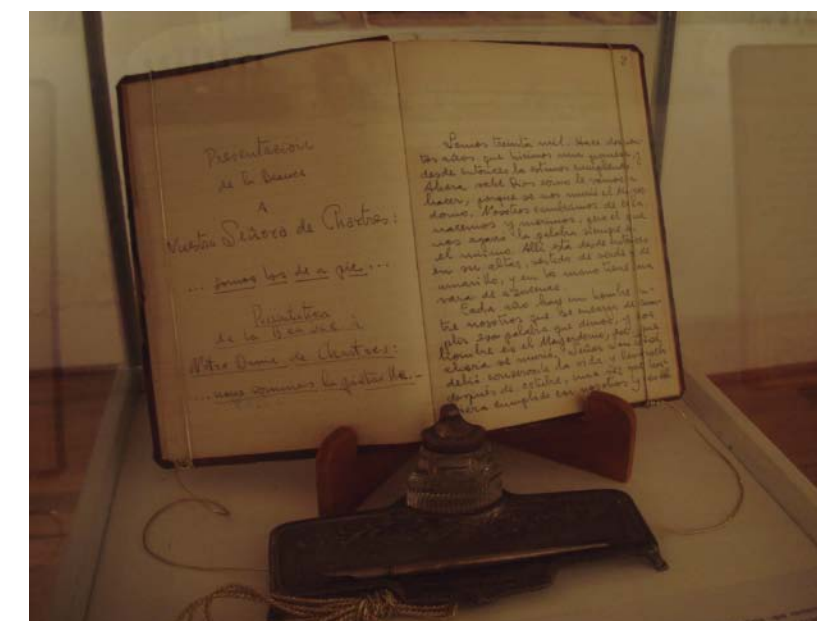 Presentacion
de la Beauce
A
Nuestra Señora de Chartres:
... somos los de a pie ...
Présentation
de la Beauce à
Notre Dame de Chartres:
... nous sommes la piétaille.-
2
Somos treinta mil. Hace doscien-
tos años que hicimos una promesa y
desde entonces la estamos cumpliendo.
Ahora sabe Dios como le vamos a
hacer, porque se nos murió el Mayor-
domo. Nosotros cambiamos de cara,
nacemos y morimos, pero el que
nos agarra la palabra siempre es
el mismo. Allí está desde entonces
en su altar, vestido de verde y de
amarillo, y en la mano tiene una
vara de azucenas.
Cada año hay un hombre en-
tre nosotros que se encarga de cum-
plir esa palabra que dimos, y ese
hombre es el Mayordomo, pero
ahora se murió.
debió conservarle la vida
después de octubre, una vez que
cumplido con nosotros y